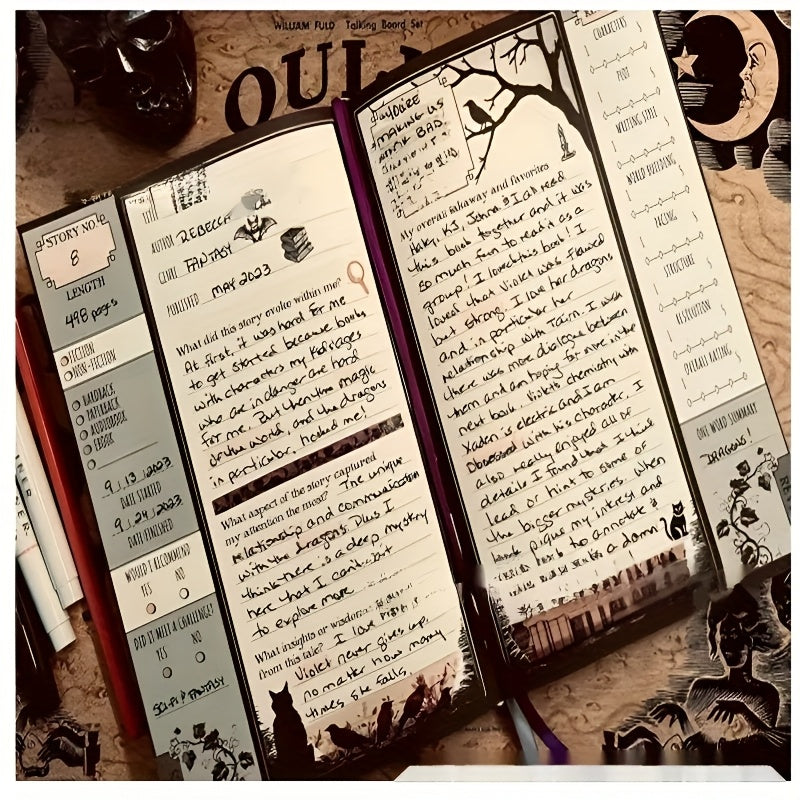 WILLIAM FULD Talking Board Set
STORY NO.
8
LENGTH
498 pages
FICTION
NON-FICTION
HARDBACK
PAPERBACK
AUDIOBOOK
EBOOK
9.13.2023
DATE STARTED
9.24.2023
DATE FINISHED
WOULD I RECOMMEND
YES NO
DID IT MEET A CHALLENGE?
YES NO
SCI-FI & FANTASY
AUTHOR REBECCA
GENRE FANTASY
PUBLISHED MAY 2023
What did this story evoke within me?
At first, it was hard for me
to get started because books
with characters my kids' ages
who are in danger are hard
for me. But then the magic
of the world, and the dragons
in particular, hooked me!
What aspect of the story captured
my attention the most? The unique
relationship and communication
with the dragons. Plus I
think there is a deep mystery
here that I can't wait
to explore more.
What insights or wisdom
from this tale? I love
Violet never gives up,
no matter how many
times she falls.
You're
making us
BAD.
My overall takaway and favorites
Haley, KJ, Jenna & I all read
this book together and it was
so much fun to read it as a
group! I loved this book! I
loved that Violet was flawed
but strong. I love her dragons
and in particular her
relationship with Tairn. I wish
there was more dialogue between
them and am hoping for more in the
next book. Violet's chemistry with
Xaden is electric and I am
Obsessed with his character. I
also really enjoyed all of
details I found that I think
lead or hint to some of
the bigger mysteries. When
books pique my interest and
to annotate &
a damn
CHARACTERS
PLOT
WRITING STYLE
WORLD BUILDING
PACING
STRUCTURE
RESOLUTION
OVERALL RATING
ONE WORD SUMMARY
DRAGONS!